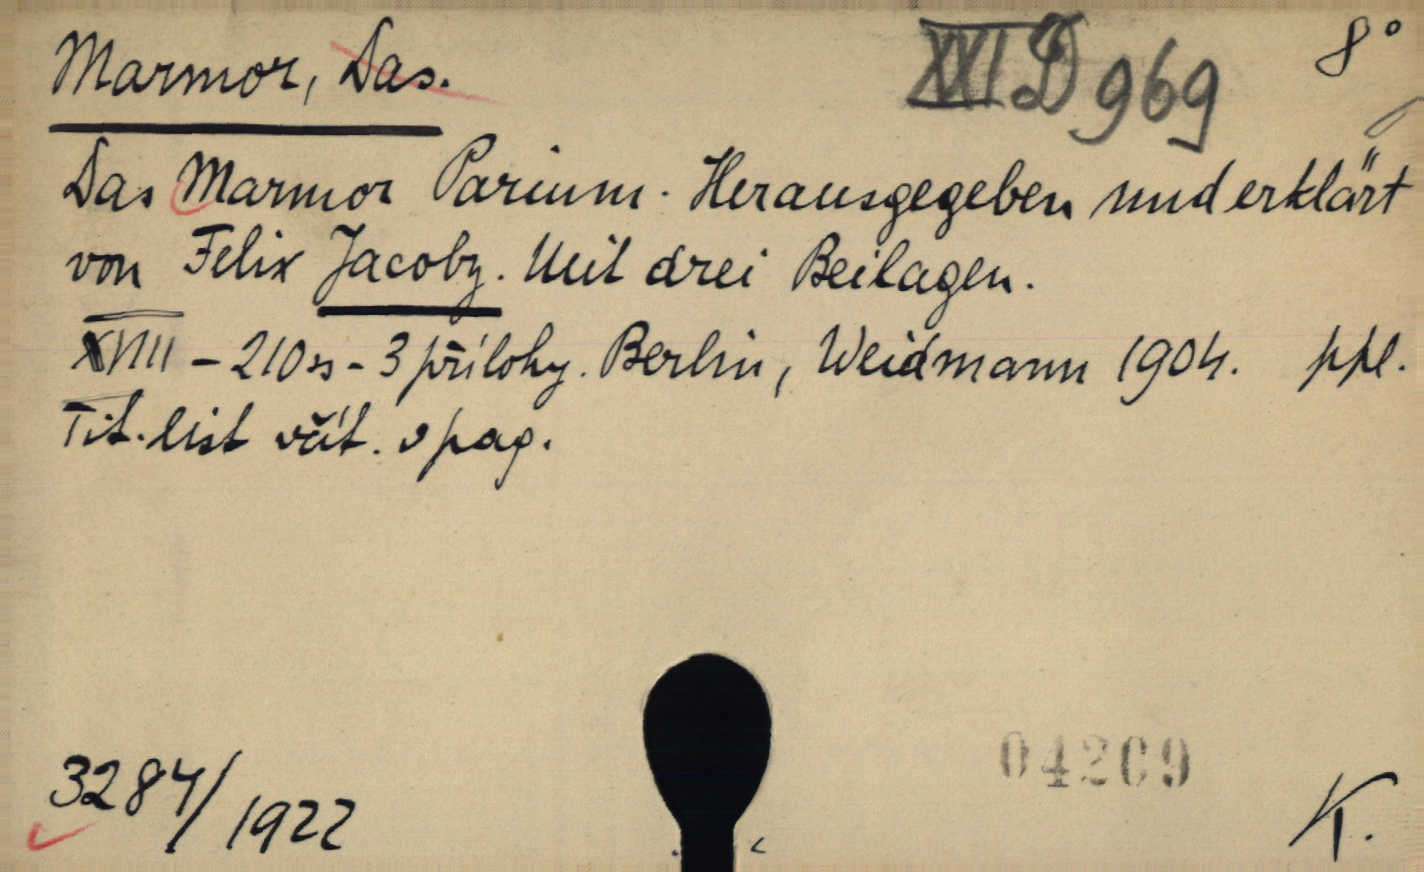 Marmor, Das.
XXI D 969
8°
Das Marmor Parium. Herausgegeben und erklärt
von Felix Jacoby. Mit drei Beilagen.
XVIII - 210 s - 3 přílohy. Berlin, Weidmann 1904. ppl.
Tit. list včít. v pag.
3284/1922
04209
K.